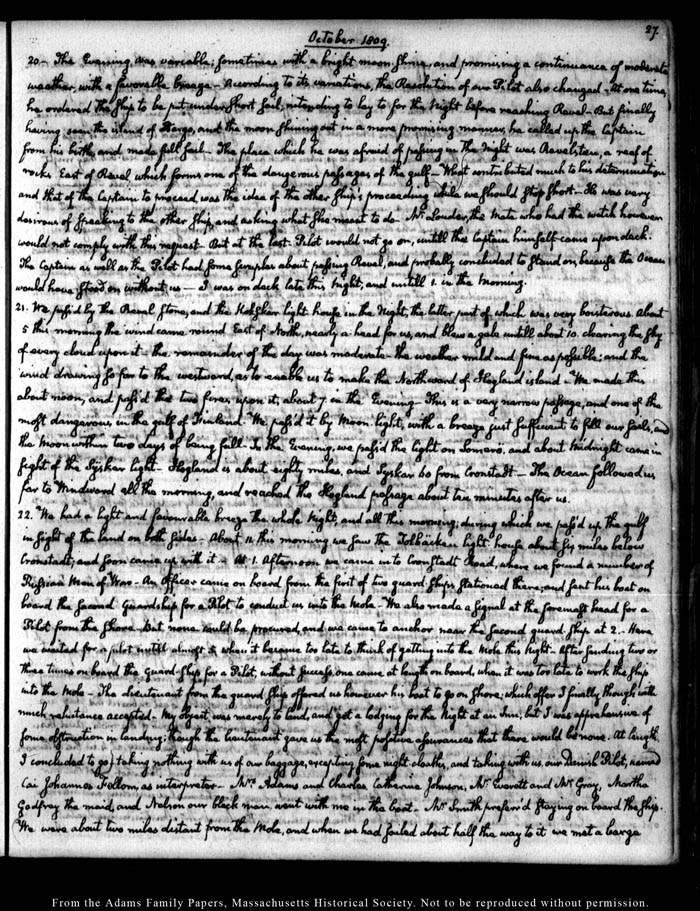 27.
October 1809.
20. The Evening was variable; sometimes with a bright moon shine, and promising a continuance of moderate
weather, with a favorable breeze - According to its variations, the Resolution of our Pilot also changed - At one time,
he ordered the Ship to be put under short sail, intending to lay to for the Night before reaching Reval - But finally
having seen the island of Nargo, and the moon shining out in a more promising manner, he called up the Captain
from his birth, and made full sail - The place which he was afraid of passing in the Night was Revelstein, a reef of
rocks East of Reval which forms one of the dangerous passages of the gulf - What contributed much to his determination
and that of the Captain to proceed, was the idea of the other ship's proceeding while we should stop short - He was very
desirous of speaking to the other ship, and asking what she meant to do - Mr. the Mate who had the watch however
would not comply with this request - But at the last Pilot would not go on, untill the Captain himself came upon deck.
The Captain as well as the Pilot had some scruples about passing Reval, and probably concluded to stand on, because the Ocean
would have stood on without us — I was on deck late this Night, and untill 1. in the Morning.
21. We pass'd by the Reval Stone, and the light house in the Night, the latter part of which was very boisterous. About
5 this morning the wind came round East of North, nearly a-head for us, and blew a gale untill about 10. clearing the sky
of every cloud upon it - the remainder of the day was moderate - the weather mild and fine as possible; and the
wind drawing so far to the westward, as to enable us to make the Northward of Hogland island - We made this
about noon, and pass'd the two fires upon it, about 7 in the Evening - This is a very narrow passage, and one of the
most dangerous in the gulf of Finland. We pass'd it by Moon-light, with a breeze just sufficient to fill our sails, and
the Moon within two days of being full. In the Evening, we pass'd the light on Somero, and about Midnight came in
sight of the Syskar light - Hogland is about eighty miles, and Syskar 60 from Cronstadt — The Ocean followed us
far to Windward all the morning, and reached the Hogland passage about ten minutes after us.
22. We had a light and favourable breeze the whole Night, and all this morning; during which we pass'd up the gulf
in sight of the land on both sides - About 11 this morning we saw the Tolbäcken light-house about six miles below
Cronstadt; and soon came up with it - At 1. Afternoon we came into Cronstadt Road, where we found a number of
Russian Men of War - An Officer came on board from the first of two guard ships stationed there, and sent his boat on
board the second Guardship for a Pilot to conduct us into the Mole - We also made a Signal at the foremast head for a
Pilot from the shore. But none could be procured, and we came to anchor near the second guard ship at 2. - Here
we waited for a pilot untill almost 5, when it became too late to think of getting into the Mole this Night - After sending two or
three times on board the Guard-Ship for a Pilot, without success, one came at length on board, when it was too late to work the ship
into the Mole - The Lieutenant from the guard ship offered us however his boat to go on shore; which offer I finally though with
much reluctance accepted - My object was merely to land, and get a lodging for the Night at an Inn; but I was apprehensive of
some obstruction in landing; though the Lieutenant gave us the most positive assurances that there would be none. At length
I concluded to go; taking nothing with us of our baggage, excepting some night cloaths, and taking with us, our Danish Pilot, named
Cai Johannes Fellom, as interpreter - Mrs. Adams and Charles, Catherine Johnson, Mr. Everett and Mr. Gray, Martha
Godfrey the maid, and Nelson our black man, went with me in the boat. Mr. Smith preferr'd staying on board the ship.
We were about two miles distant from the Mole, and when we had sailed about half the way to it we met a barge
From the Adams Family Papers, Massachusetts Historical Society. Not to be reproduced without permission.